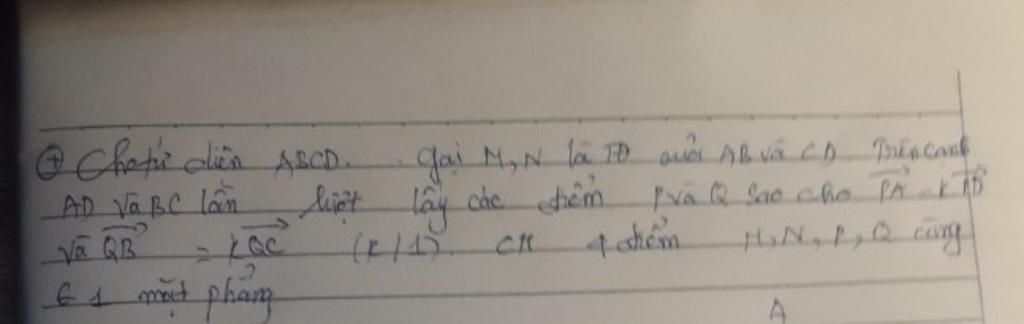 ⊕ Cho tứ diện ABCD. Gọi M, N là TĐ của AB và CD Trên cạnh
AD và BC lần lượt lấy các điểm P và Q sao cho PA = k PD
và QB = k QC (k/1). CM 4 điểm M, N, P, Q cùng
∈ 1 mặt phẳng
A